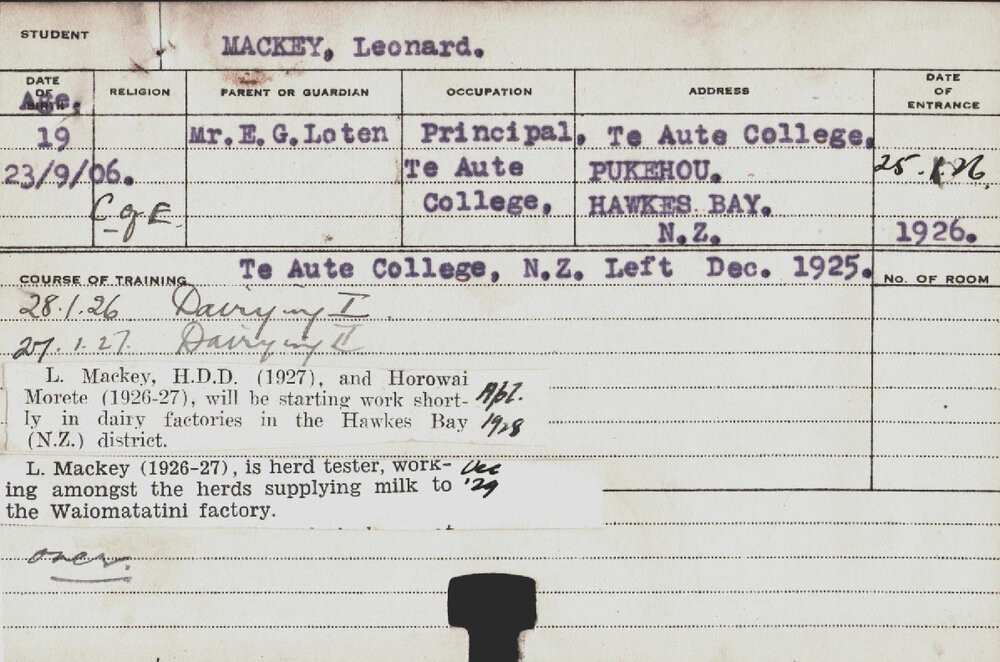 STUDENT
MACKEY, Leonard.
DATE OF BIRTH RELIGION PARENT OR GUARDIAN OCCUPATION ADDRESS DATE OF ENTRANCE
Age.
19 Mr.E.G.Loten Principal, Te Aute College,
23/9/06. Te Aute PUKEHOU. 25.1.26
C of E. College, HAWKES BAY.
N.Z. 1926.
COURSE OF TRAINING Te Aute College, N.Z. Left Dec. 1925. No. OF ROOM
28.1.26 Dairying I
27.1.27. Dairying II
L. Mackey, H.D.D. (1927), and Horowai
Morete (1926-27), will be starting work short- Apl.
ly in dairy factories in the Hawkes Bay 1928
(N.Z.) district.
L. Mackey (1926-27), is herd tester, work- Dec
ing amongst the herds supplying milk to '29
the Waiomatatini factory.
over.